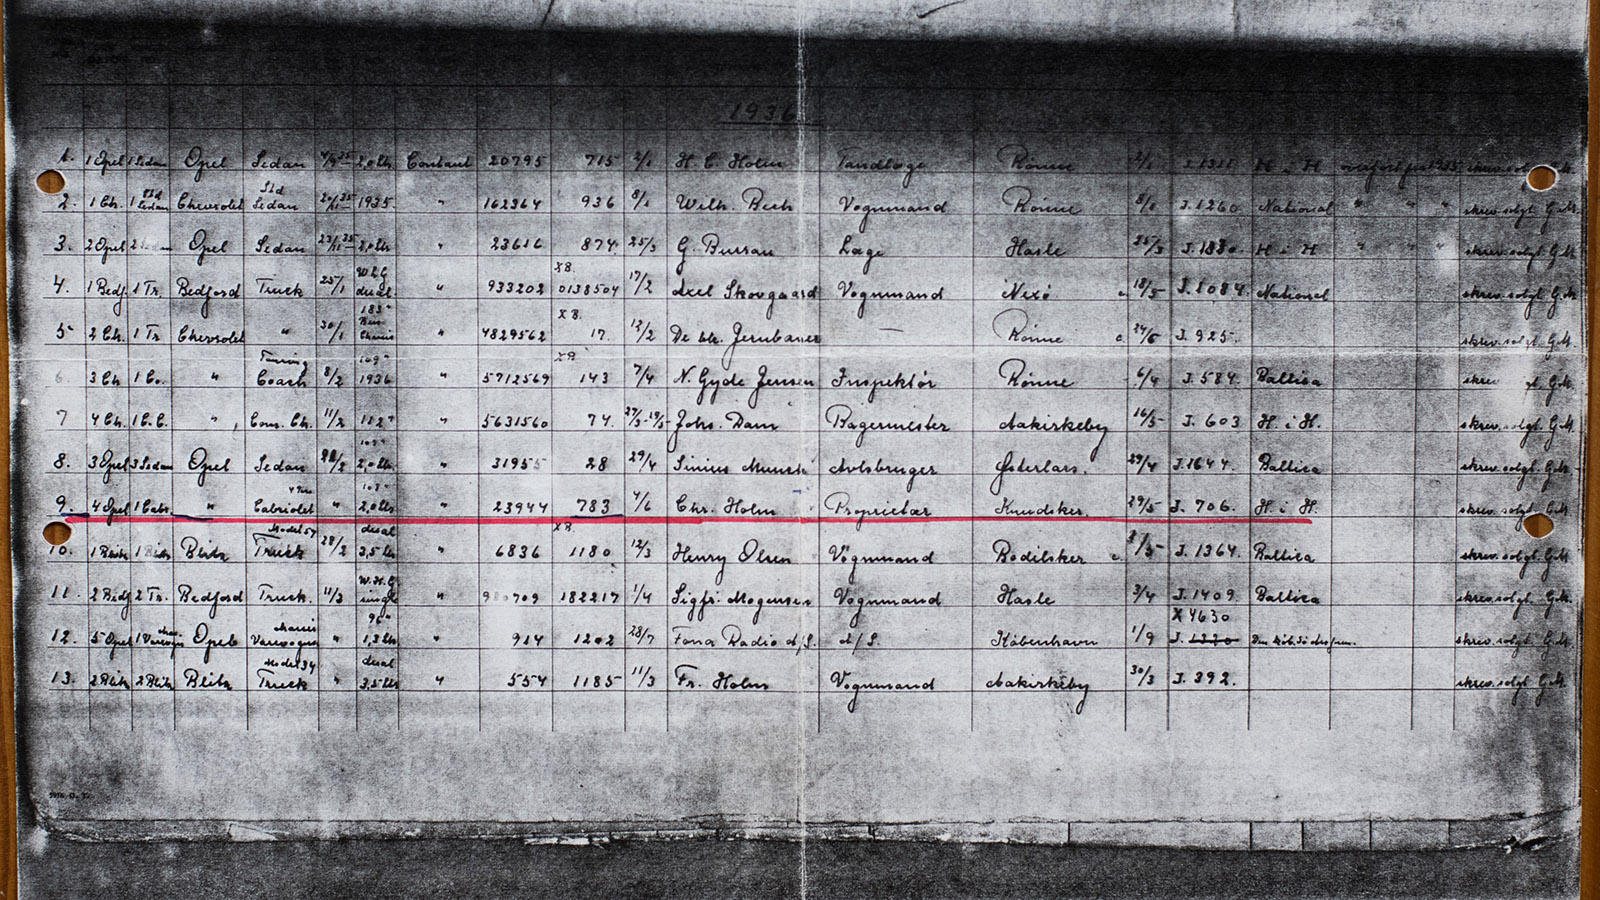 1936
1. 1 Opel 1 Sedan Opel Sedan 2,0 Ltr. Contant 20795 715 2/1 H. C. Holm Tandlæge Rønne 2/1 J. 1311 H i H overført fra 1935
2. 1 Ch. 1 Std Sedan Chevrolet Std Sedan 1935. " 162364 936 8/1 Wilh. Bech Vognmand Rønne 8/1 J. 1260 National " " " skrev. solgt. G.M.
3. 2 Opel 2 Sedan Opel Sedan 2,0 Ltr. " 23616 874. 25/3 G. Bursau Læge Hasle 25/3 J. 1830. H i H " " " skrev. solgt. G.M.
4. 1 Bedf. 1 Tr. Bedford Truck 25/1 dual. " 933202 X8. 0138504 17/2 Axel Skovgaard Vognmand Nexø 18/5 J. 1084. National skrev. solgt. G.M.
5 2 Ch. 1 Tr. Chevrolet " 30/1 183" " 4829562 X8. 17. 12/2 De bh. Jernbaner — Rønne 24/6 J. 925. skrev. solgt. G.M.
6. 3 Ch 1 Co. " Touring Coach 8/2 109" 1936 " 5712569 X8. 143 7/4 N. Gyde Jensen Inspektør Rønne 6/4 J. 584. Baltica skrev gt. G.M.
7 4 Ch. 1 C.C. " Com. Ch. 11/2 112" " 5631560 74. Johs. Dam Bagermester Aakirkeby 16/5- J. 603 H. i H. skrev. solgt. G.M.
8. 3 Opel 3 Sedan Opel Sedan 2,0 Ltr. " 31955 28 29/4 Sinius Munch Avlsbruger Østerlars. 29/4 J. 1644. Baltica skrev. solgt. G.M.
9. 4 Opel 1 Cabr. " Cabriolet " 2,0 Ltr " 23944 783 4/6 Chr. Holm Proprietær Knudsker. 29/5 J. 706. H i H. skrev. solgt. G.M.
10. 1 Blitz 1 Blitz Blitz Truck 28/2 dual 3,5 Ltr " 6836 X8. 1180 12/3 Henry Olsen Vognmand Bodilsker J. 1364. Baltica skrev. solgt. G.M.
11. 2 Bedf 2 Tr. Bedford Truck. 11/3 single " 182217 1/4 Sigfr. Mogensen Vognmand Hasle 3/4 J. 1409. Baltica skrev. solgt. G.M.
12. 5 Opel 1 Opel Varevogn " 1,3 Ltr. " 914 1202 28/7 Fona Radio a/S. a/S. København 1/9 X 4630 J. 1320 skrev. solgt. G.M.
13. 2 Blitz 2 Blitz Blitz Model 34 Truck " dual 3,5 Ltr " 554 1185 11/3 Fr. Holm Vognmand Aakirkeby 30/3 J. 392. skrev. solgt. G.M.